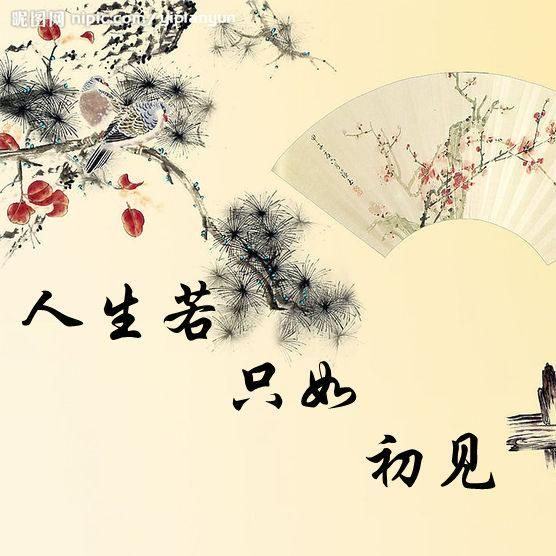 昵图网 nipic.com/yiplanyun
人生若
只如
初见